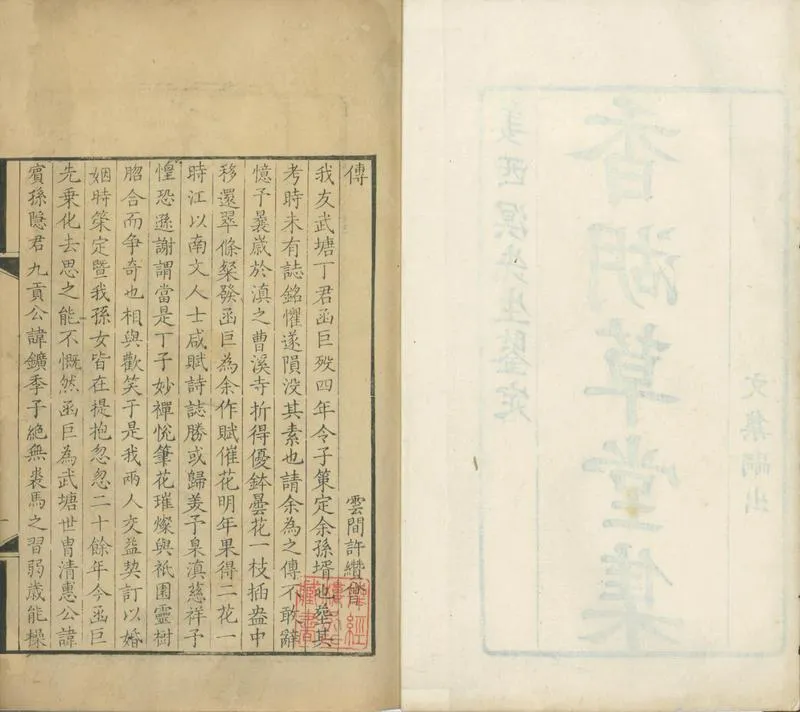 姜西溟先生鑒定
香湖草堂集
文集嗣出
傳
雲間許纘曾
我友武塘丁君函巨歿四年令子策定余孫壻也葬其
考時未有誌銘懼遂隕没其素也請余為之傳不敢辭
憶予曩歲於滇之曹溪寺折得優鉢曇花一枝插盎中
移還翠條粲發函巨為余作賦催花明年果得二花一
時江以南文人士咸賦詩誌勝或歸美予臬滇慈祥予
惶恐遜謝謂當是丁子妙禪悅筆花璀燦與祇園靈樹
脗合而争奇也相與歡笑于是我兩人交益契訂以婚
姻時策定暨我孫女皆在提抱忽忽二十餘年今函巨
先乘化去思之能不慨然函巨為武塘世胄清惠公諱
賓孫隱君九貢公諱鑛季子絶無裘馬之習弱歲能操